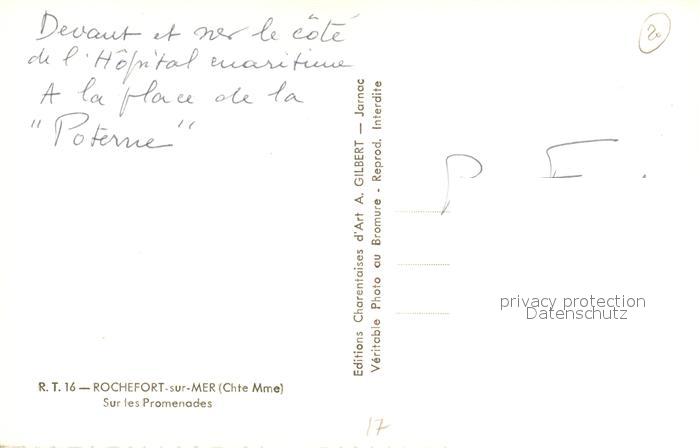 Devant et sur le côté
de l'Hôpital maritime
A la place de la
"Poterne"
20
Editions Charentaises d'Art A. GILBERT — Jarnac
Véritable Photo au Bromure - Reprod. Interdite
P E.
privacy protection
Datenschutz
R. T. 16 — ROCHEFORT-sur-MER (Chte Mme)
Sur les Promenades
17